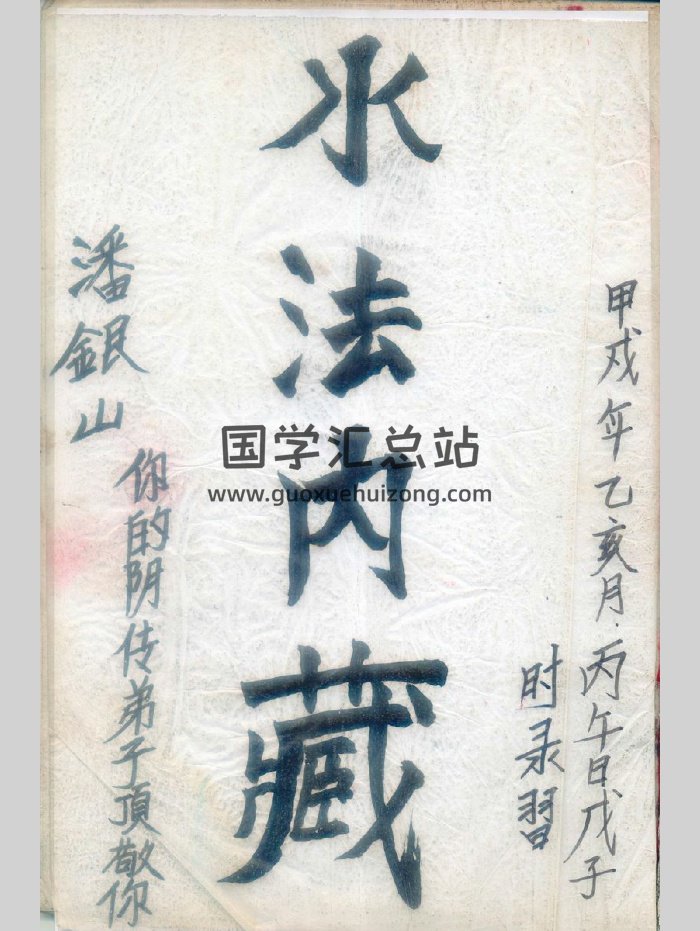 甲戌年乙亥月·丙午日戊子
时录習
水法内藏
潘銀山
你的阴传弟子頂敬你
国学汇总站
www.guoxuehuizong.com